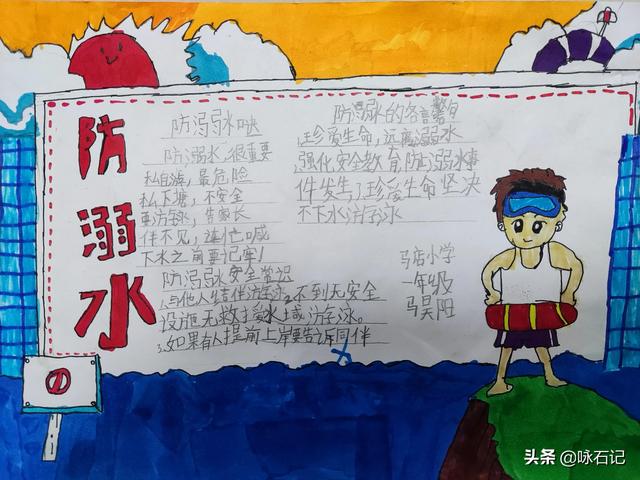 防
溺
水
防溺水
防溺水,很重要
私自游,最危险
私下塘,不安全
要游泳,告家长
伴不见,速亡喊
下水之前要记牢!
防溺水安全常识
1.与他人结伴游泳2.不到无安全
设施无救援水域游泳。
3.如果有人提前上岸要告诉同伴
防溺水的名言警句
1.珍爱生命,远离溺水
强化安全教育,防止溺水事
件发生了珍爱生命坚决
不下水游泳
马店小学
一年级
马昊阳
头条 @咏石记